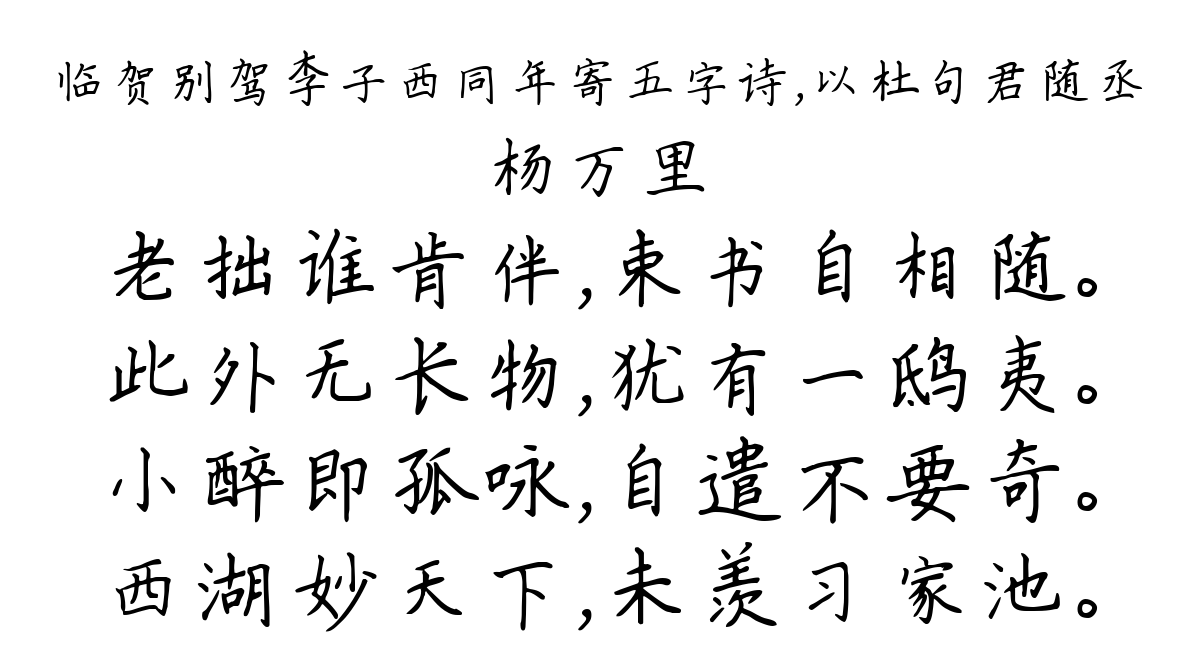 临贺别驾李子西同年寄五字诗,以杜句君随丞
杨万里
老拙谁肯伴,束书自相随。
此外无长物,犹有一鸱夷。
小醉即孤咏,自遣不要奇。
西湖妙天下,未羡习家池。